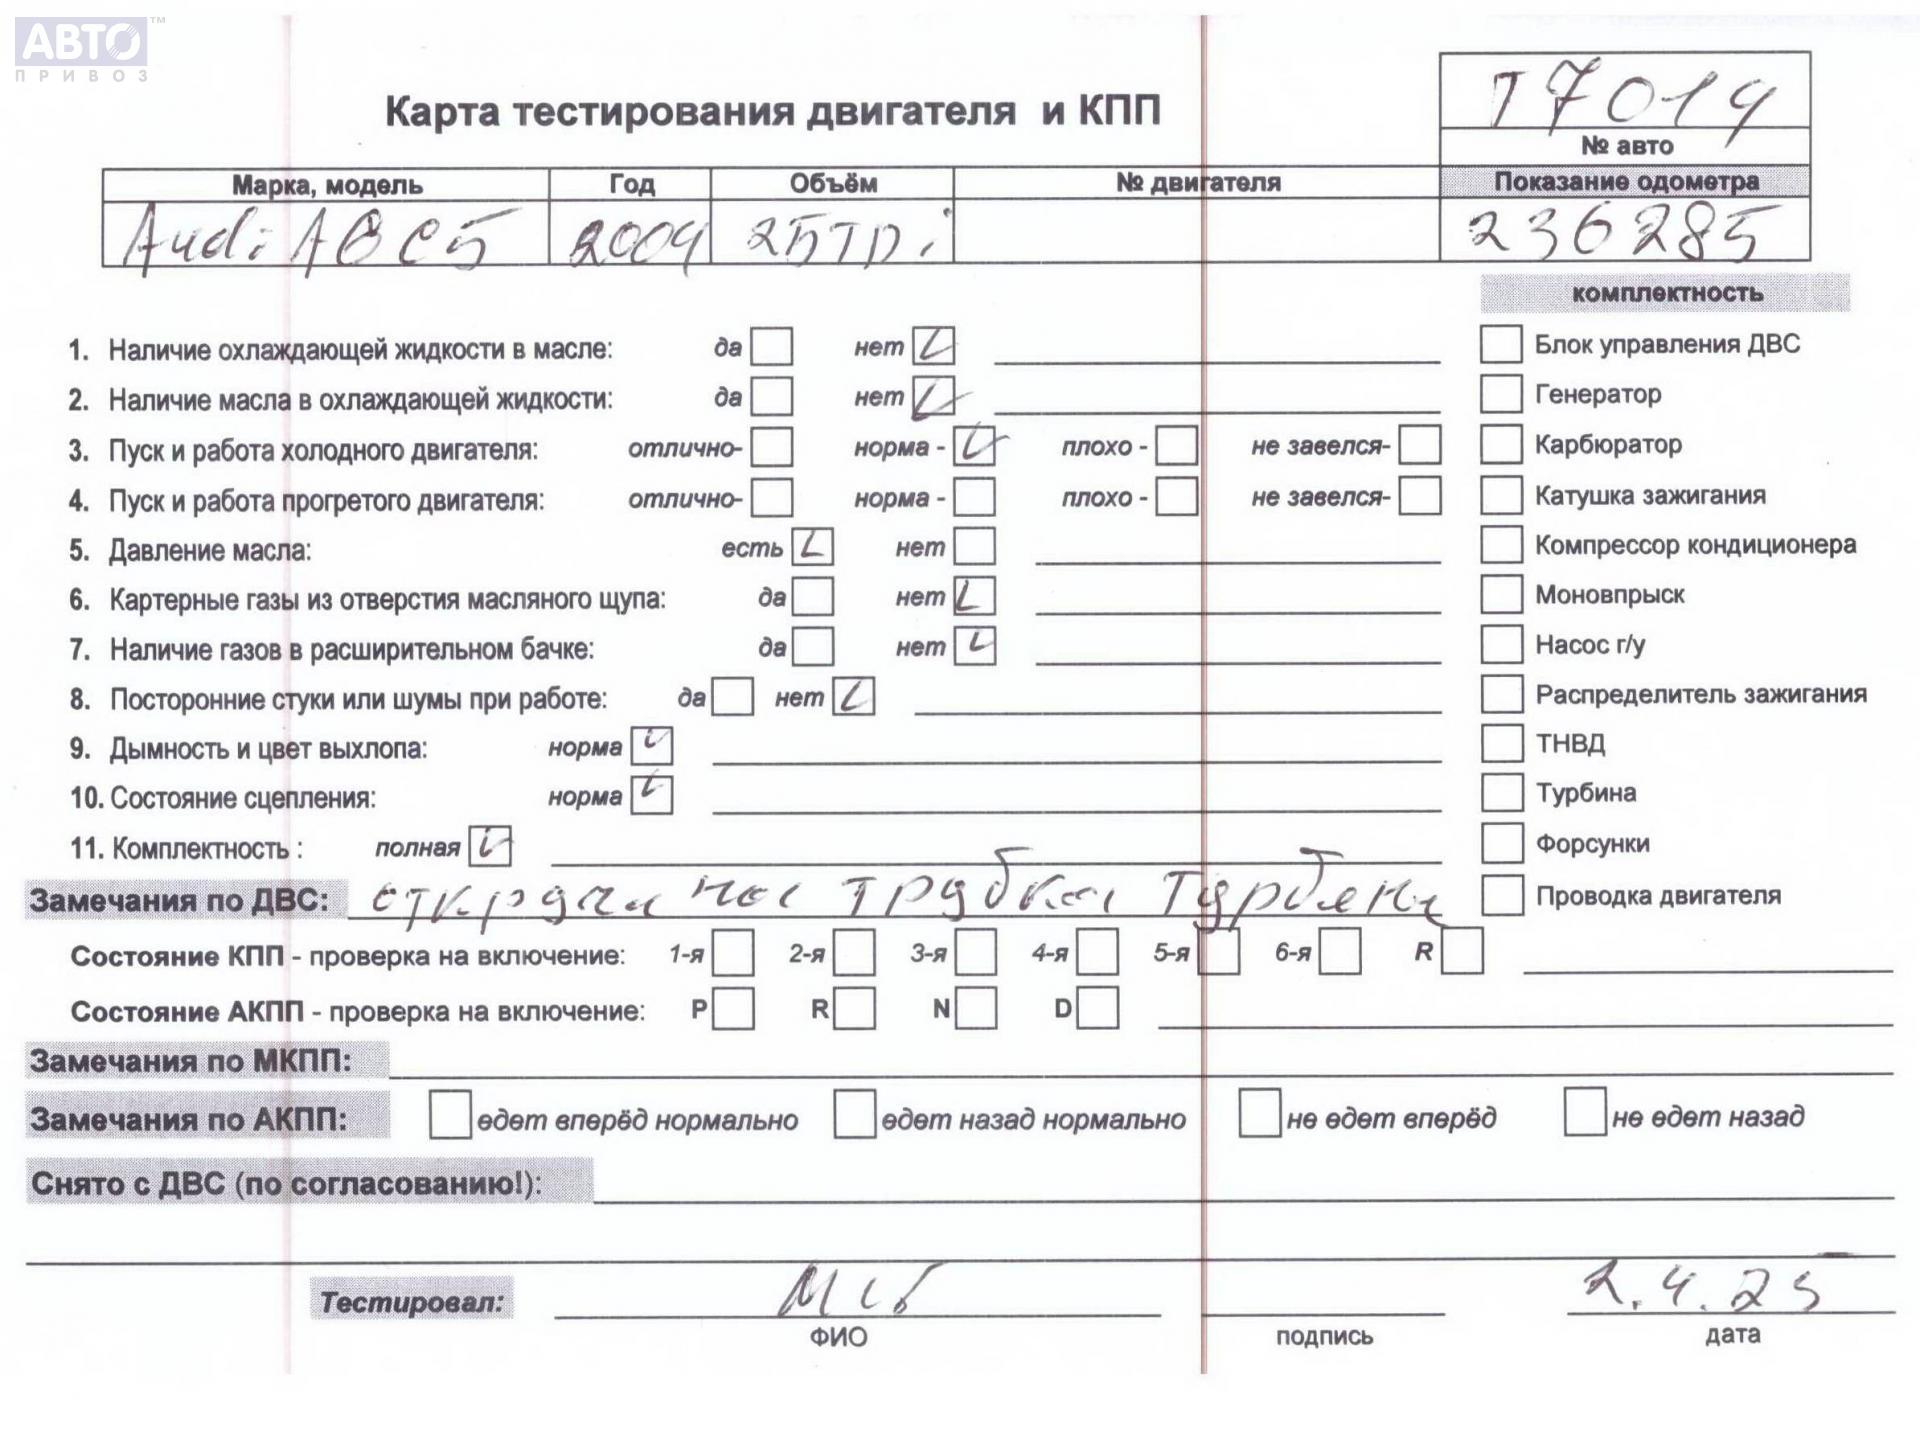 АВТО™
ПРИВОЗ
Карта тестирования двигателя и КПП
T7019
№ авто
Марка, модель Год Объём № двигателя Показание одометра
Audi A6C5 2004 25TDi 236285
комплектность
1. Наличие охлаждающей жидкости в масле: да нет Блок управления ДВС
2. Наличие масла в охлаждающей жидкости: да нет Генератор
3. Пуск и работа холодного двигателя: отлично- норма - плохо - не завелся- Карбюратор
4. Пуск и работа прогретого двигателя: отлично- норма - плохо - не завелся- Катушка зажигания
5. Давление масла: есть нет Компрессор кондиционера
6. Картерные газы из отверстия масляного щупа: да нет Моновпрыск
7. Наличие газов в расширительном бачке: да нет Насос г/у
8. Посторонние стуки или шумы при работе: да нет Распределитель зажигания
9. Дымность и цвет выхлопа: норма ТНВД
10. Состояние сцепления: норма Турбина
11. Комплектность : полная Форсунки
Замечания по ДВС: трубка Проводка двигателя
Состояние КПП - проверка на включение: 1-я 2-я 3-я 4-я 5-я 6-я R
Состояние АКПП - проверка на включение: P R N D
Замечания по МКПП:
Замечания по АКПП: едет вперёд нормально едет назад нормально не едет вперёд не едет назад
Снято с ДВС (по согласованию!):
Тестировал: 2.4.25
ФИО подпись дата